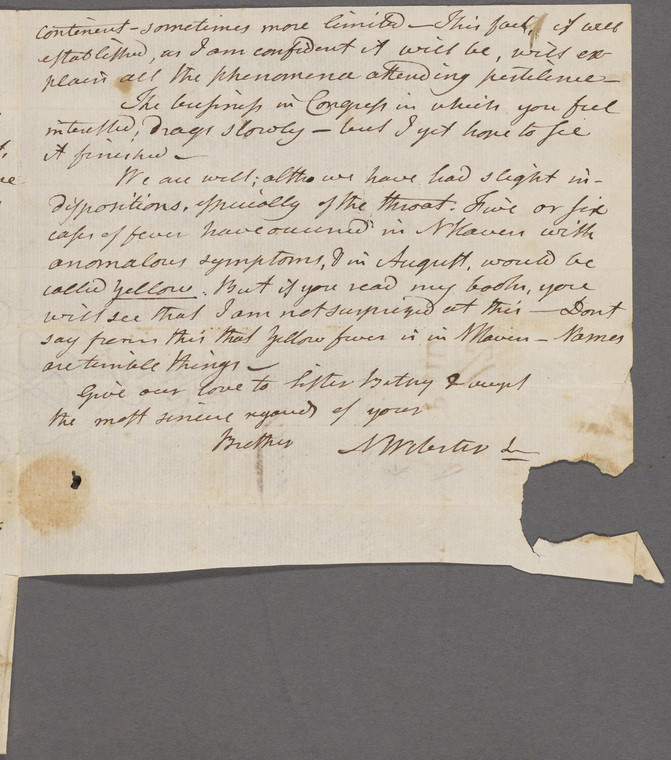 continent - sometimes more limited - This fact, if well
established, as I am confident it will be, will ex-
plain all the phenomena attending pestilence -
The business in Congress in which you feel
interested, drags slowly - but I yet hope to see
it finished -
We are well; altho we have had slight in-
dispositions, especially of the throat. Five or six
cases of fever have occurred in NHaven with
anomalous symptoms, & in August, would be
called yellow. But if you read my books, you
will see that I am not surprized at this - Dont
say from this that Yellow fever is in NHaven - Names
are terrible things -
Give our love to Sister Betsey & accept
the most sincere regards of your
Brother N Webster Jr